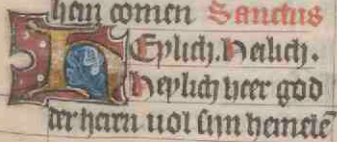 hein comen Sanctus
Eylich. Heilich.
Heylich heer god
der heirn uol sijn hemelē